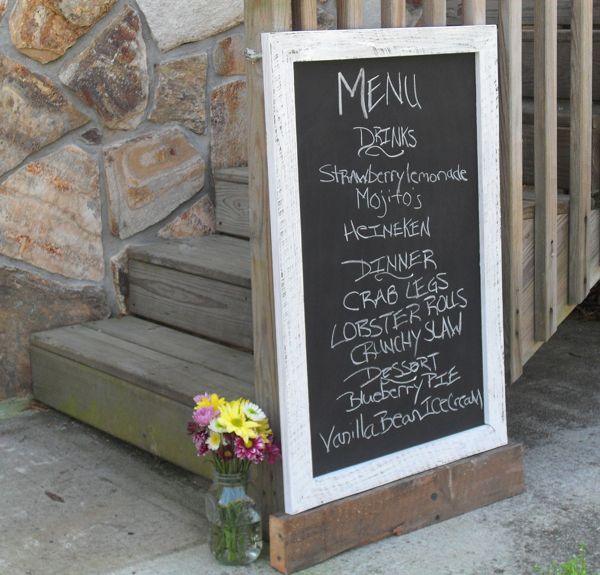 MENU
DRINKS
Strawberry lemonade
Mojito's
HEINEKEN
DINNER
CRAB LEGS
LOBSTER ROLLS
CRUNCHY SLAW
DESSORT
BlueberRy PIE
Vanilla Bean Ice Cream